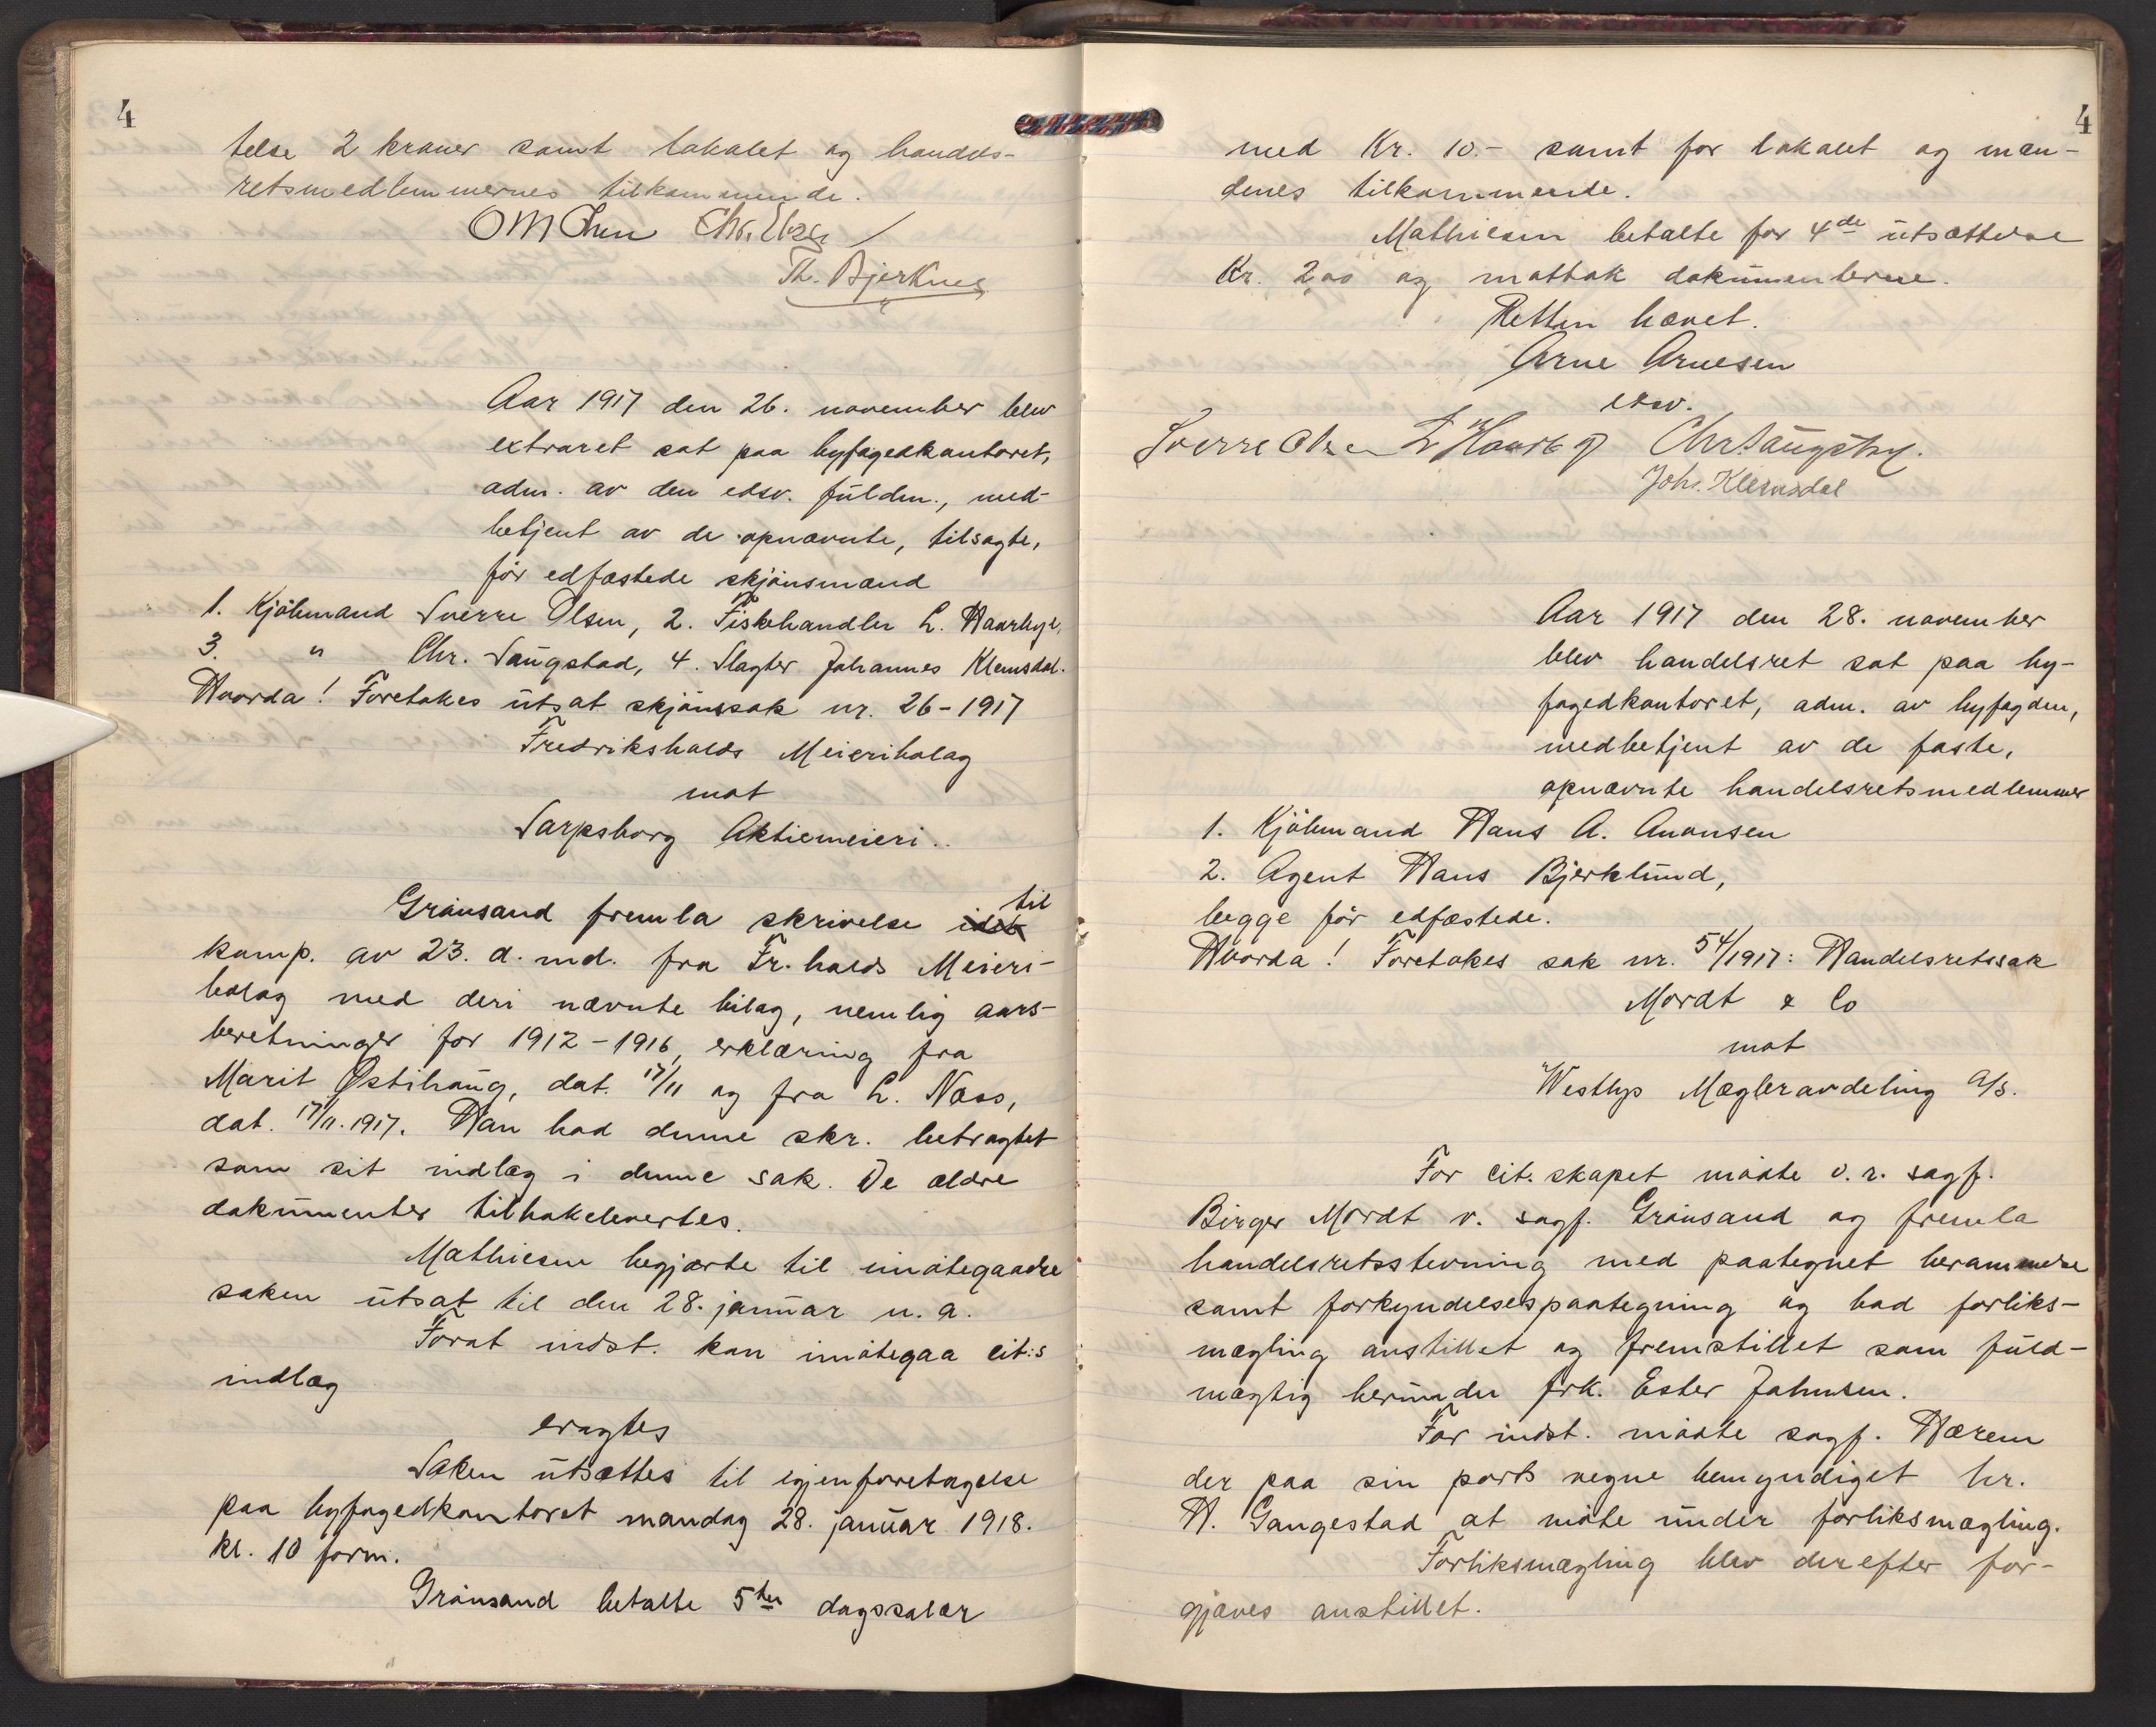 4
telse 2 kroner samt lokalet og handels-
retsmedlemmernes tilkommende.
OM Olsen Chr.
Th. Bjerknes
Aar 1917 den 26. november blev
extraret sat paa byfogedkontoret,
adm. av den edsv. fuldm., med-
betjent av de opnævnte, tilsagte,
før edfæstede skjönsmænd
1. Kjöbmand Sverre Olsen, 2. Fiskehandler L. Haarbye,
3. " Chr. Saugstad, 4. Slagter Johannes Klemsdal.
Hvorda! Foretokes utsat skjönssak nr. 26-1917
Fredrikshalds Meieribolag
mot
Sarpsborg Aktiemeieri..
Grönsand fremla skrivelse idet til
komp. av 23. d. md. fra Fr.halds Meieri-
bolag med deri nævnte bilag, nemlig aars-
beretninger for 1912-1916, erklæring fra
Marit Østihaug, dat. 17/11 og fra L. Næss,
dat. 17/11.1917. Han bad denne skr. betragtet
som sit indlæg i denne sak. De ældre
dokumenter tilbakelevertes.
Mathiesen begjærte til imötegaaelse
saken utsat til den 28. januar n. a.
Forat indst. kan imötegaa cit:s
indlæg
eragtes
Saken utsættes til igjenforetagelse
paa byfogedkontoret mandag 28. januar 1918.
kl. 10 form.
Grönsand betalte 5te dagssalær
4
med Kr. 10.- samt for lokalet og mæn-
denes tilkommende.
Mathiesen betalte for 4de utsættelse
Kr. 2,00 og mottok dokumenterne.
Retten hævet.
Arne Arnesen
edsv.
Sverre Olsen L Haarbye Chr. Saugstad.
Johs. Klemsdal
Aar 1917 den 28. november
blev handelsret sat paa by-
fogedkontoret, adm. av byfogden,
medbetjent av de faste,
opnævnte handelsretsmedlemmer
1. Kjöbmand Hans A. Anonsen
2. Agent Hans Bjerklund,
begge før edfæstede.
Hvorda! Foretokes sak nr. 54/1917: Handelsretssak
Mordt & Co
mot
Westbys Mægleravdeling A/S.
For cit.skapet mötte o.r. sagf.
Birger Mordt v. sagf. Grönsand og fremla
handelsretsstevning med paategnet berammelse
samt forkyndelsespaategning og bad forliks-
mægling anstillet og fremstillet som fuld-
mægtig herunder frk. Ester Johnsen.
For indst. mötte sagf. Hærem
der paa sin parts vegne bemyndiget hr.
H. Gangestad at möte under forliksmægling.
Forliksmægling blev derefter for-
gjæves anstillet.